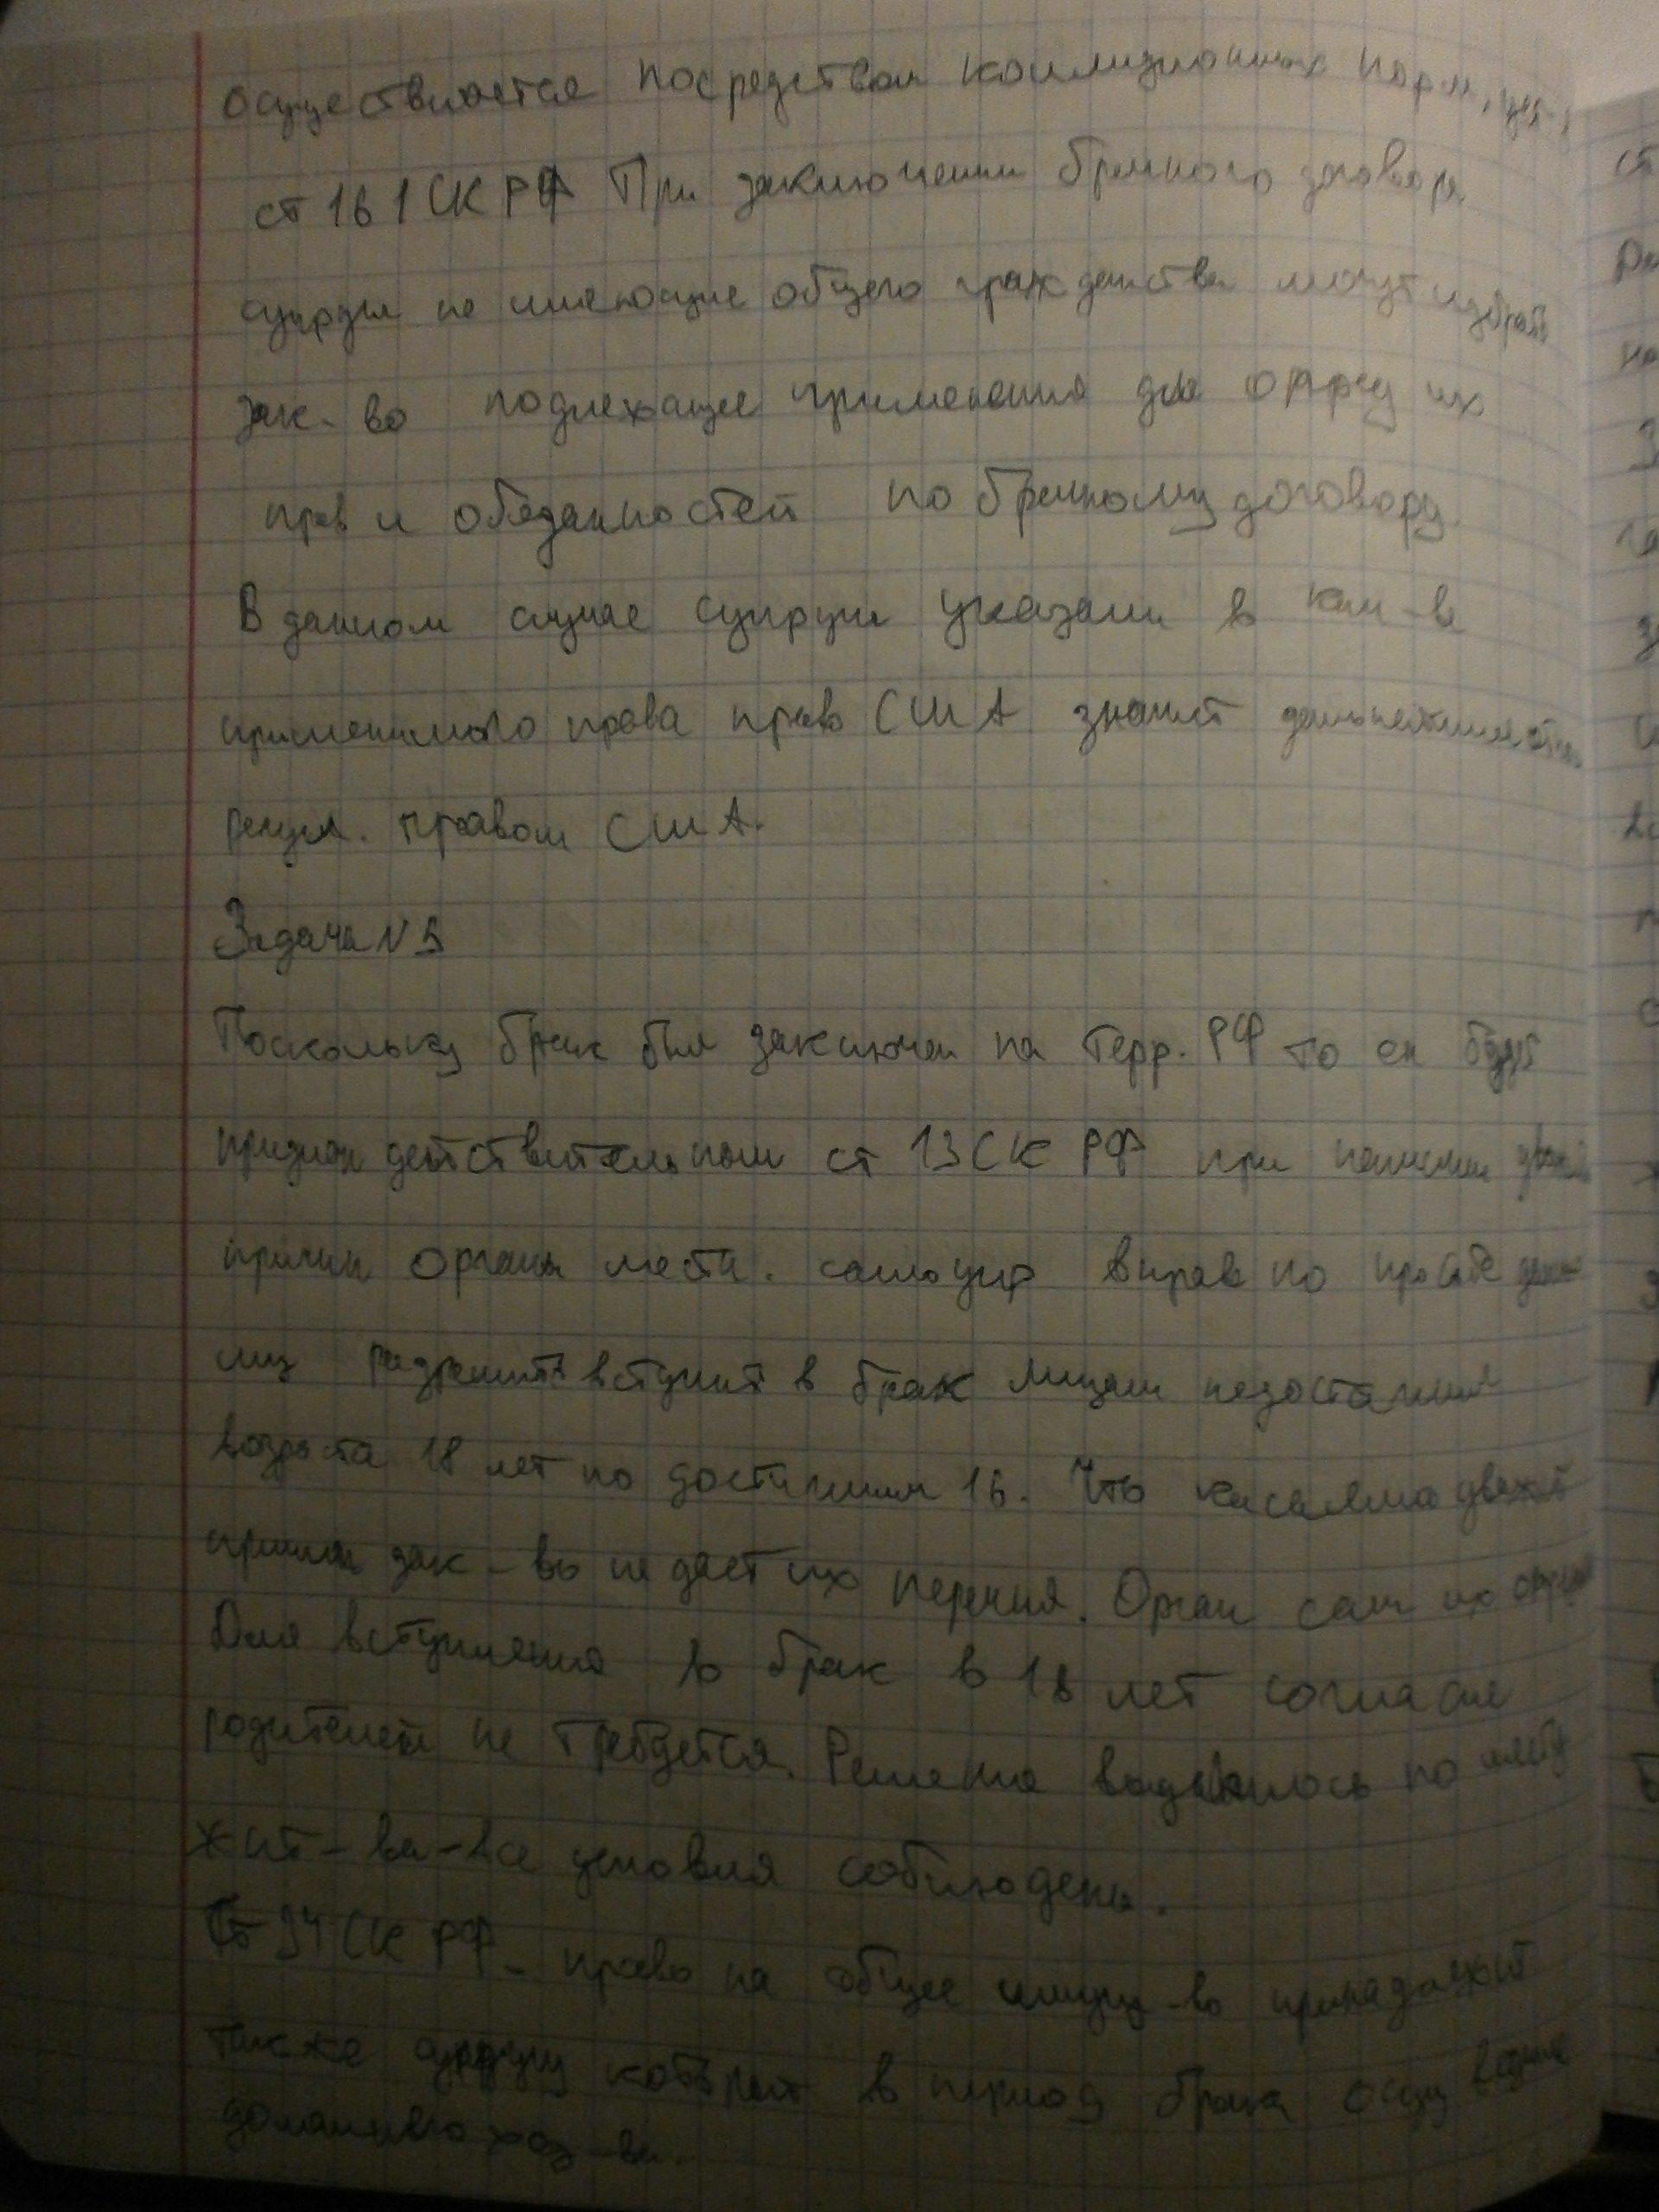 осуществляется посредством коллизионных норм,
ст 161 СК РФ При заключении брачного договора
супруги не имеющие общего гражданства могут избрать
зак-во подлежащее применения для опред их
прав и обязанностей по брачному договору.
В данном случае супруги указали в кач-в
применимого права право США значит дальнейшие
регул. правом США.
Задача N 3
Поскольку брак был заключен на терр. РФ то он будет
признан действительным ст 13 СК РФ при наличии уваж
причин органы местн. самоупр вправе по просьбе данн
лиц разрешить вступит в брак лицам недостигшим
возраста 18 лет по достижении 16. Что касаемо уважит
причин зак-во не дает их перечня. Орган сам их
Для вступления в брак в 18 лет согласие
родителей не требуется. Решение выдавалось по месту
жит-ва-все условия соблюдены.
Ст 34 СК РФ - право на общее имущ-во принадлежит
также супругу который в период брака осущ ведение
домашнего хоз-ва.